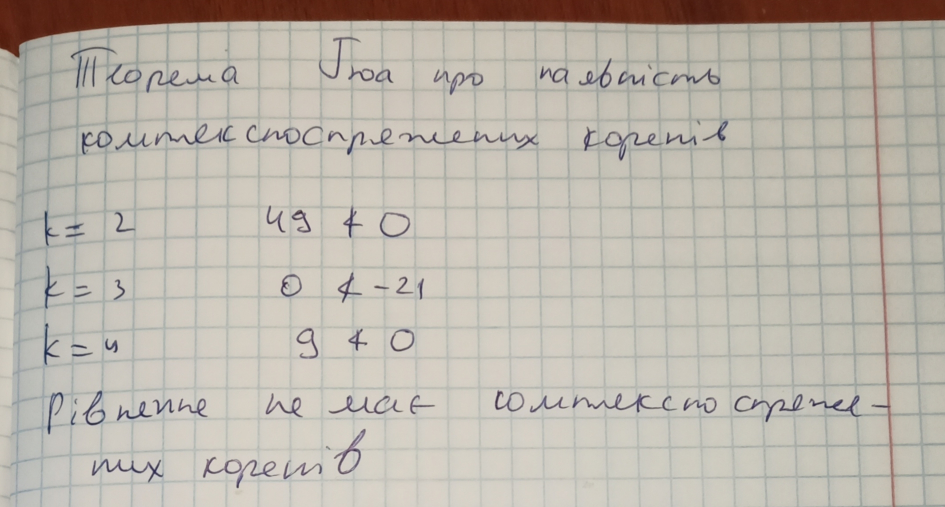 Теорема Гюа про наявність
комплексноспряжених коренів
k = 2 49 ≮ 0
k = 3 0 ≮ -21
k = 4 9 ≮ 0
Рівняння не має комплексно спряже-
них коренів